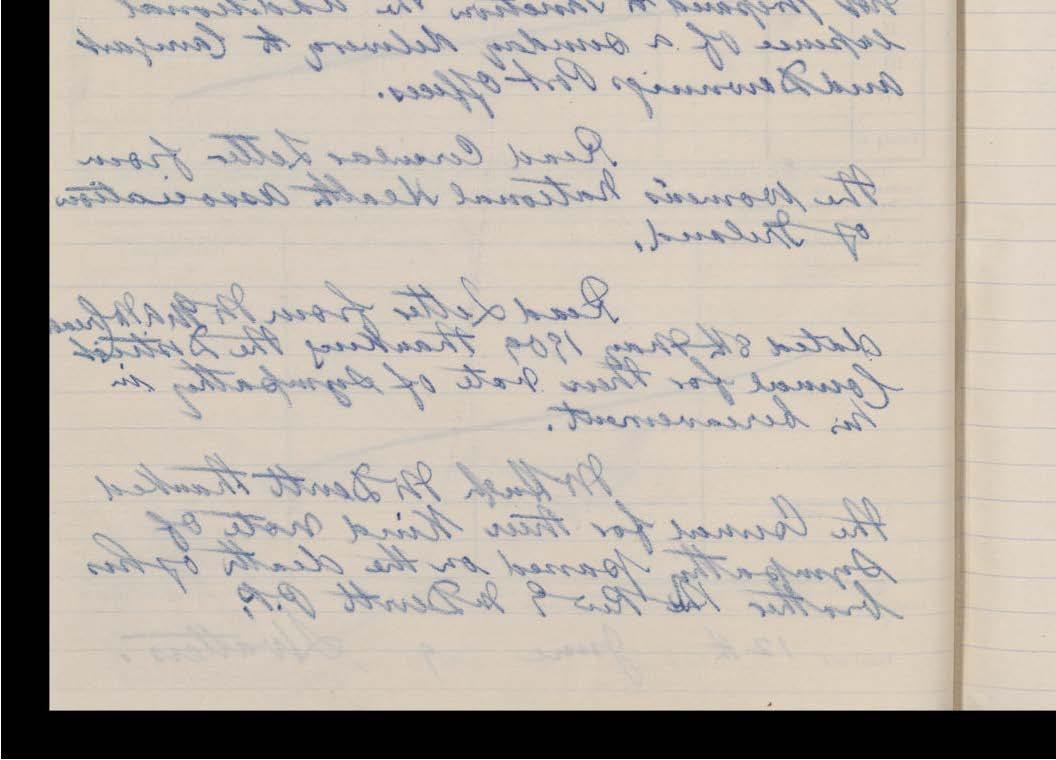 not prepared to sanction the additional
expense of a sunday delivery to Carrigart
and Downings Post Offices.
Read Circular Letter from
the Women's National Health Association
of Ireland.
Read Letter from Mr
dated 8th May 1909 thanking the District
Council for their vote of sympathy in
his bereavement.
Mr Hugh McDevitt thanked
the Council for their kind vote of
sympathy passed on the death of his
brother the Revd J McDevitt P.P.
12th June 9